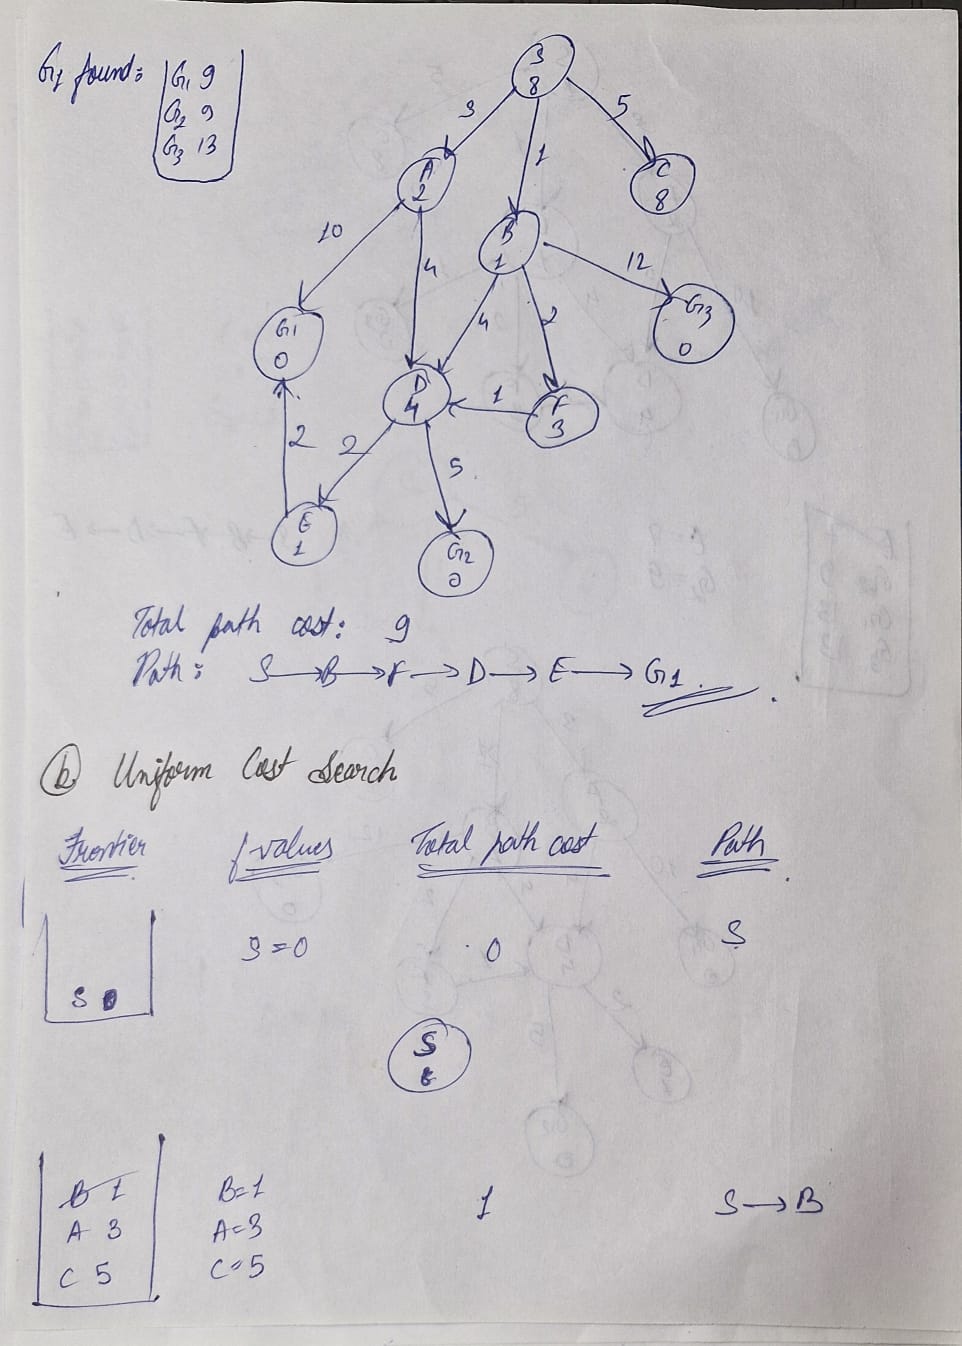 G1 found: G1 9
G2 9
G3 13
S
8
3
1
5
A
2
C
8
B
1
10
4
12
4
2
G1
0
G3
0
D
4
1
F
3
2
2
5
E
1
G2
0
Total path cost: 9
Path: S → B → F → D → E → G1.
(b) Uniform Cost Search
Frontier f values Total path cost Path
S 0 S=0 0 S
S
B 1 B=1 1 S → B
A 3 A=3
C 5 C=5